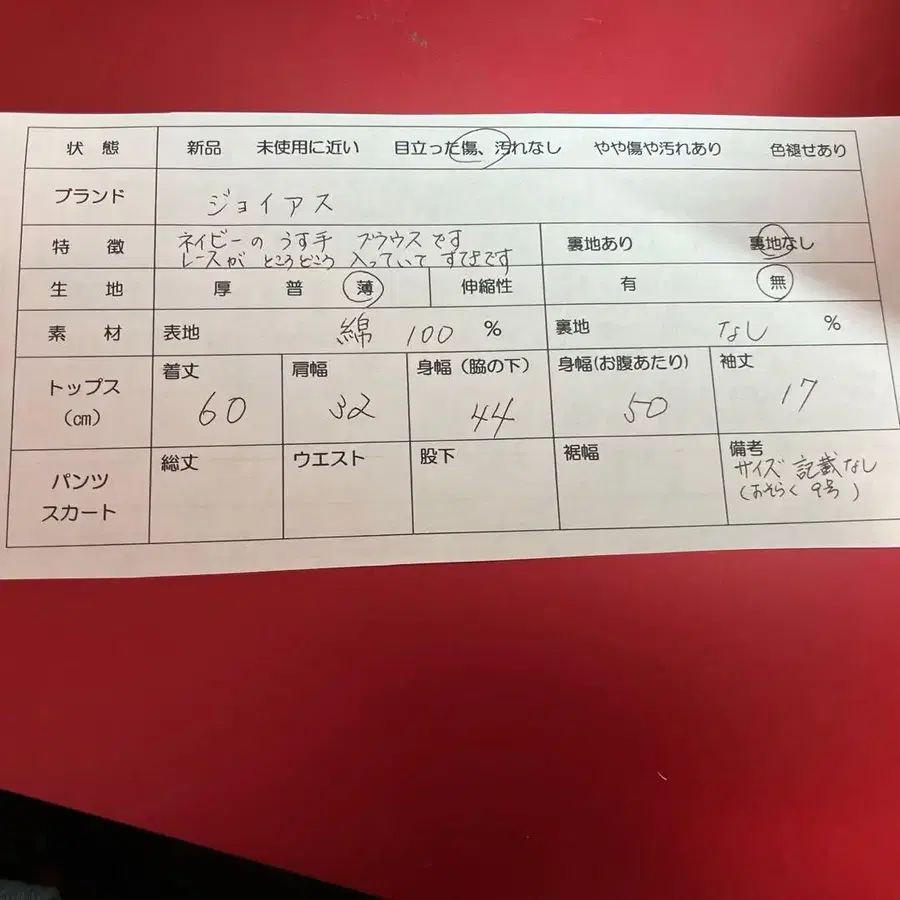 状態 新品 未使用に近い 目立った傷、汚れなし やや傷や汚れあり 色褪せあり
ブランド ジョイアス
特徴 ネイビーの うす手 ブラウスです
レースが ところどころ 入っていて すてきです
裏地あり 裏地なし
生地 厚 普 薄 伸縮性 有 無
素材 表地 綿 100 % 裏地 なし %
トップス
(cm)
着丈 肩幅 身幅(脇の下) 身幅(お腹あたり) 袖丈
60 32 44 50 17
パンツ
スカート
総丈 ウエスト 股下 裾幅 備考
サイズ 記載なし
(おそらく 9号 )